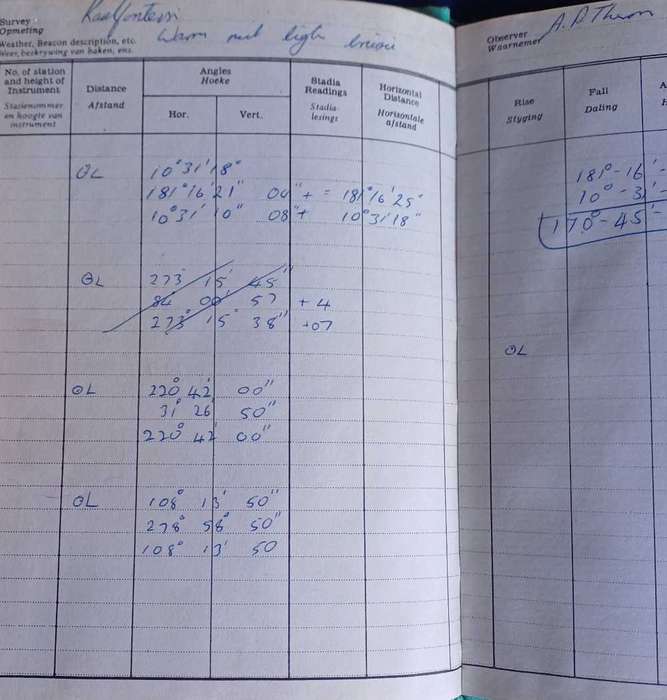 Survey
Opmeting
Weather, Beacon description, etc.
Weer, beskrywing van baken, ens.
Warm and ligh
No. of station
and height of
Instrument
Stasienommer
en hoogte van
instrument
Distance
Afstand
Angles
Hoeke
Hor.
Vert.
Stadia
Readings
Stadia-
lesings
Horizontal
Distance
Horizontale
afstand
ΘL 10° 31' 18"
181° 16' 21" 04" + = 181° 16' 25"
10° 31' 10" 08" + 10° 31' 18"
ΘL 273° 15' 45"
84 00' 57 + 4
273° 15' 38" +07
ΘL 220° 42' 00"
31° 26 50"
220° 42' 00"
ΘL 108° 13' 50"
278° 58' 50"
108° 13' 50
Observer
Waarnemer
Rise
Styging
Fall
Daling
181° - 16
10° - 31
170° - 45' -
ΘL